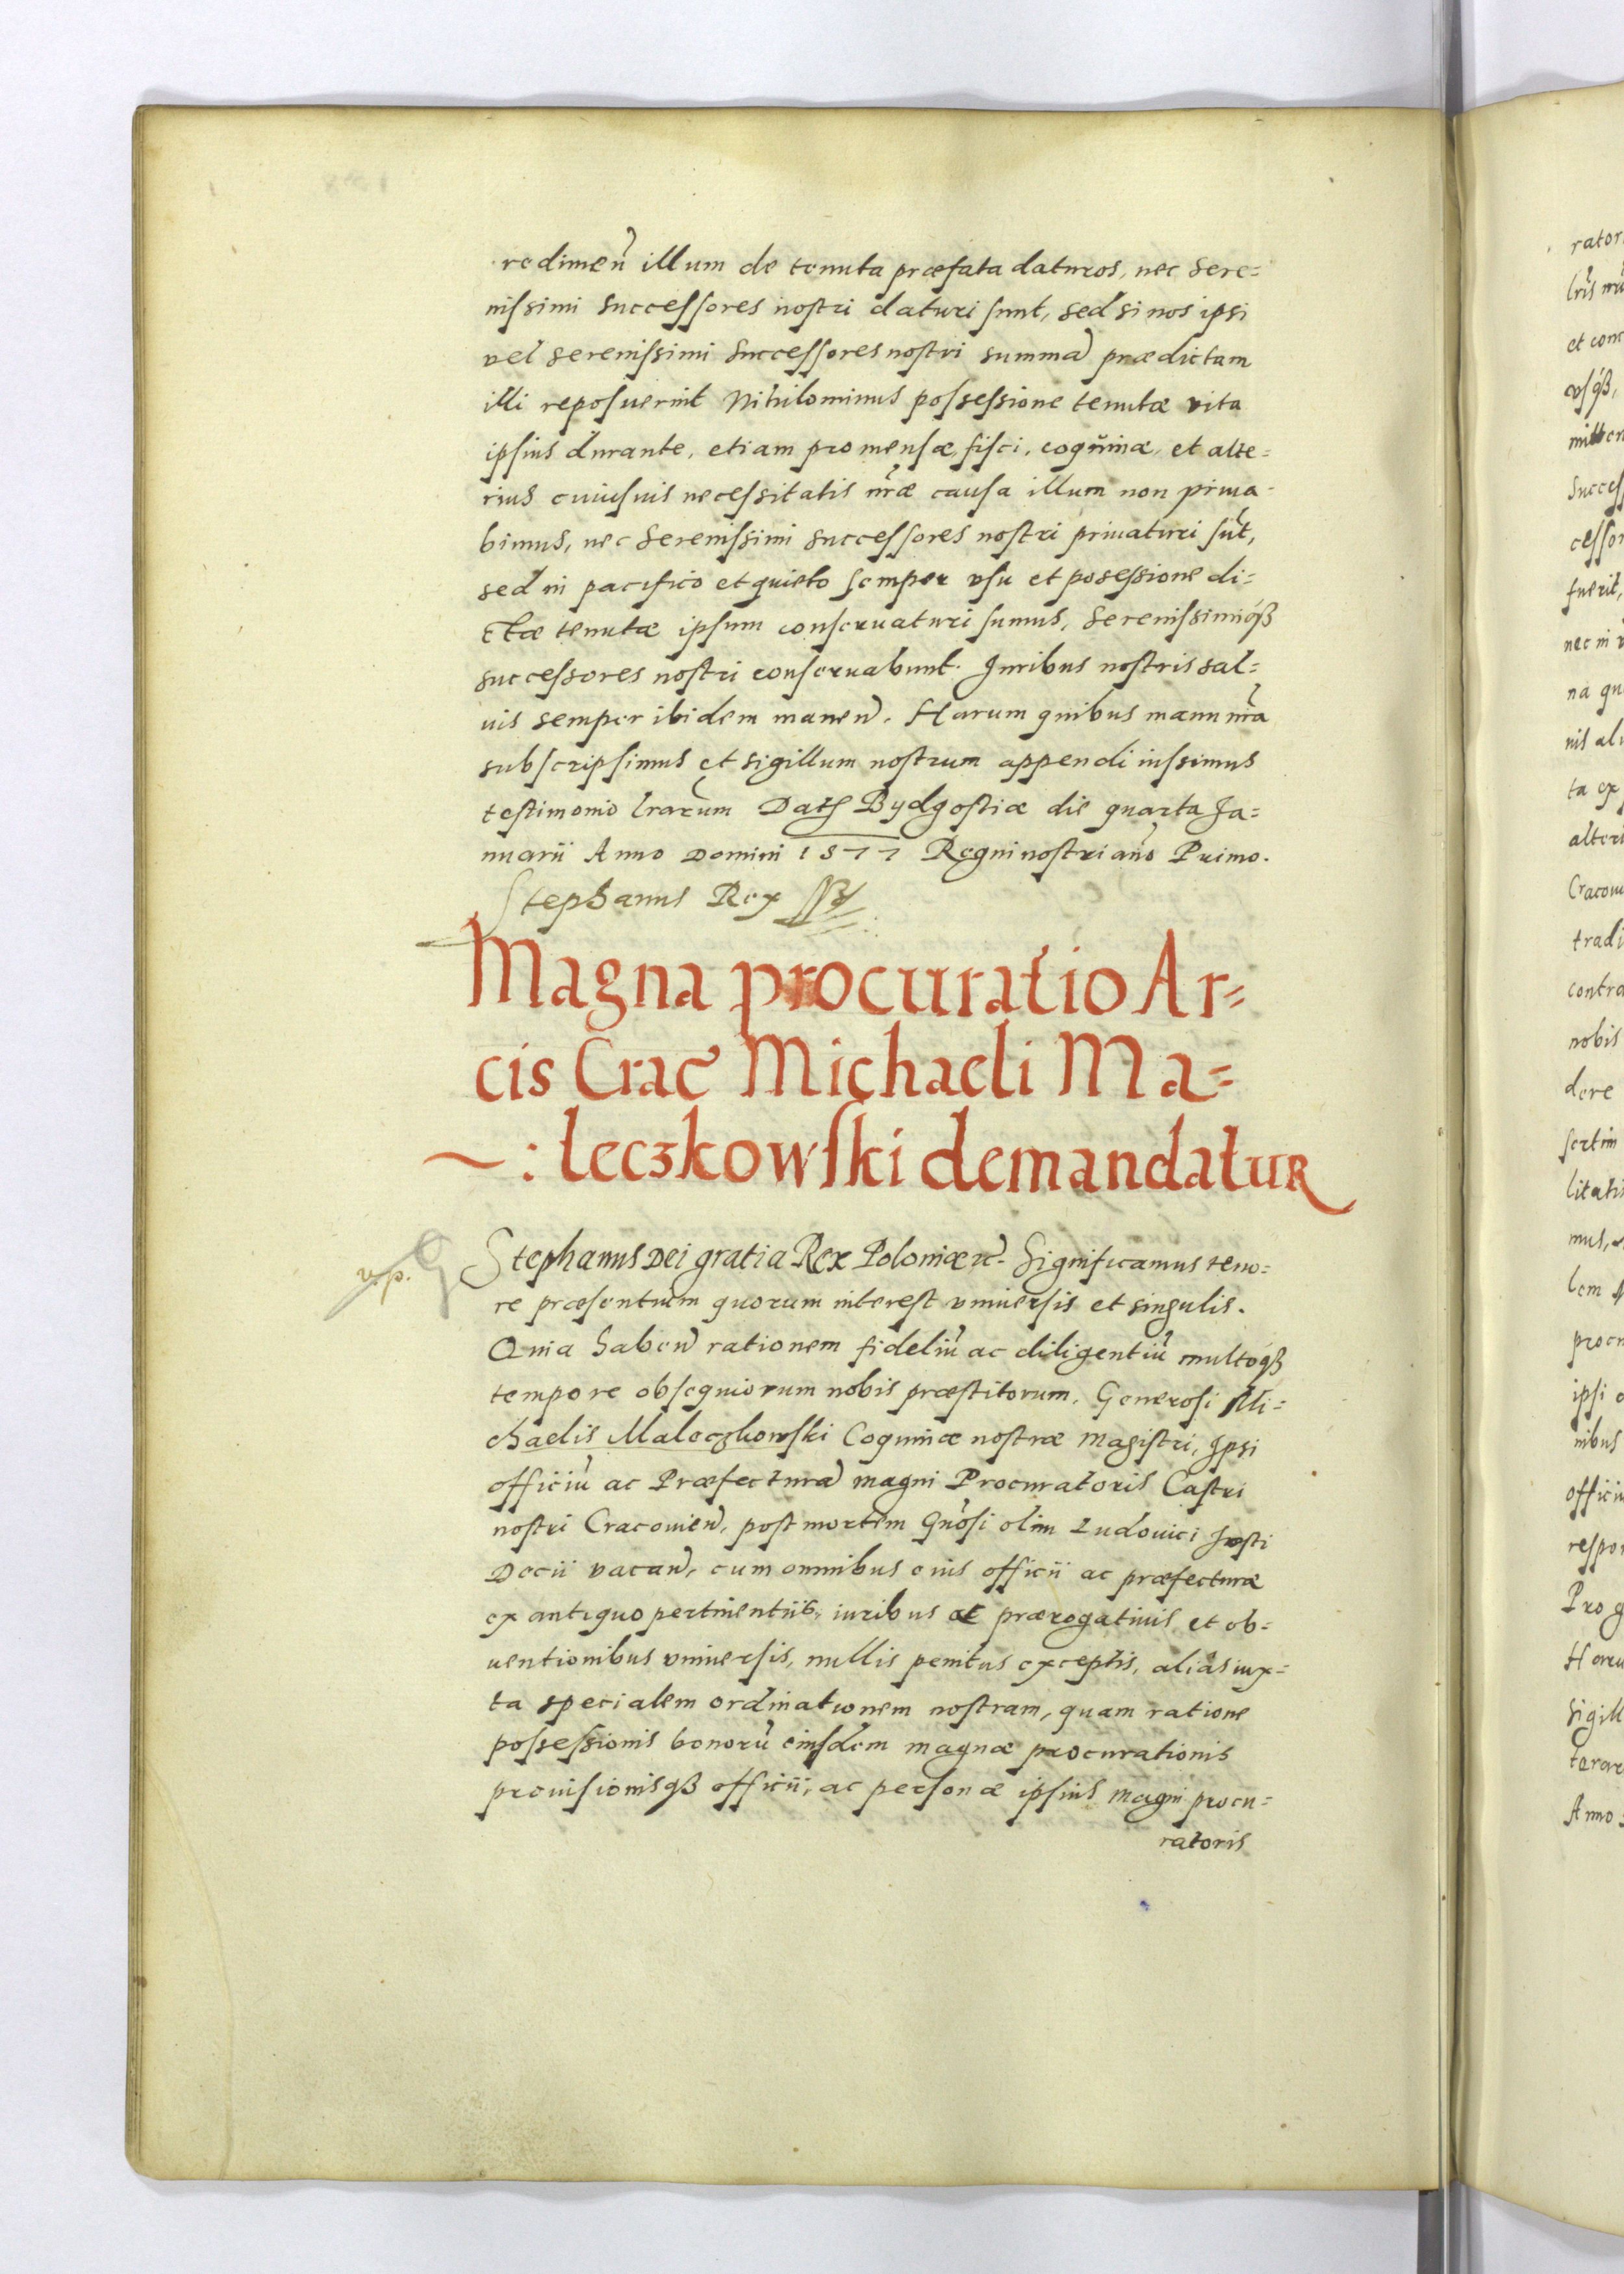 redimeñ illum de tenuta præfata daturos, nec Sere=
nissimi Successores nostri daturi sunt, sed si nos ipsi
vel serenissimi Successores nostri summã prædictam
illi reposuerint Nihilominus possessione tenutæ vita
ipsius durante, etiam pro mensæ, fisci, coqũinæ, et alte=
rius cuiusuis necessitatis nr̃æ causa illum non priua=
bimus, nec Serenissimi successores nostri priuaturi sũt,
sed in pacifico et quieto semper vsu et posessione di=
ctæ tenutæ ipsum conseruaturi sumus, Serenissimiqß
successores nostri conseruabunt. Juribus nostris sal=
uis semper ibidem maneñ. Harum quibus manu nr̃a
subscripsimus et sigillum nostrum appendi iussimus
testimonio lrarũm Datß Bydgostiæ die quarta Ja=
nuarii Anno Domini 1577 Regni nostri año Primo.
Stephanus Rex
Magna procuratio Ar=
cis Crac̃ Michaeli Ma=
~: leczkowski demandatur
v. p.
Stephanus Dei gratia Rex Poloniæ ꝛc. Significamus teno=
re præsentium quorum interest vniuersis et singulis.
Quia habeñ rationem fideliũ ac diligentiũ multoqß
tempore obsequiorum nobis præstitorum, Generosi Mi=
chaelis Maleczkowski Coquinæ nostræ Magistri, Ipsi
officiũ ac Præfecturã magni Procuratoris Castri
nostri Cracouieñ, post mortem Gñosi olim Ludouici Josti
Decii vacañ, cum omnibus eius officii ac præfecturæ
ex antiquo pertinentiis, iuribus et prærogatiuis, et ob=
uentionibus vniuersis, nullis penitus exceptis, alias iux=
ta specialem ordinationem nostram, quam ratione
possessionis bonorũ eiusdem magnæ procurationis
prouisionisqß officii, ac personæ ipsius magni procu=
ratoris